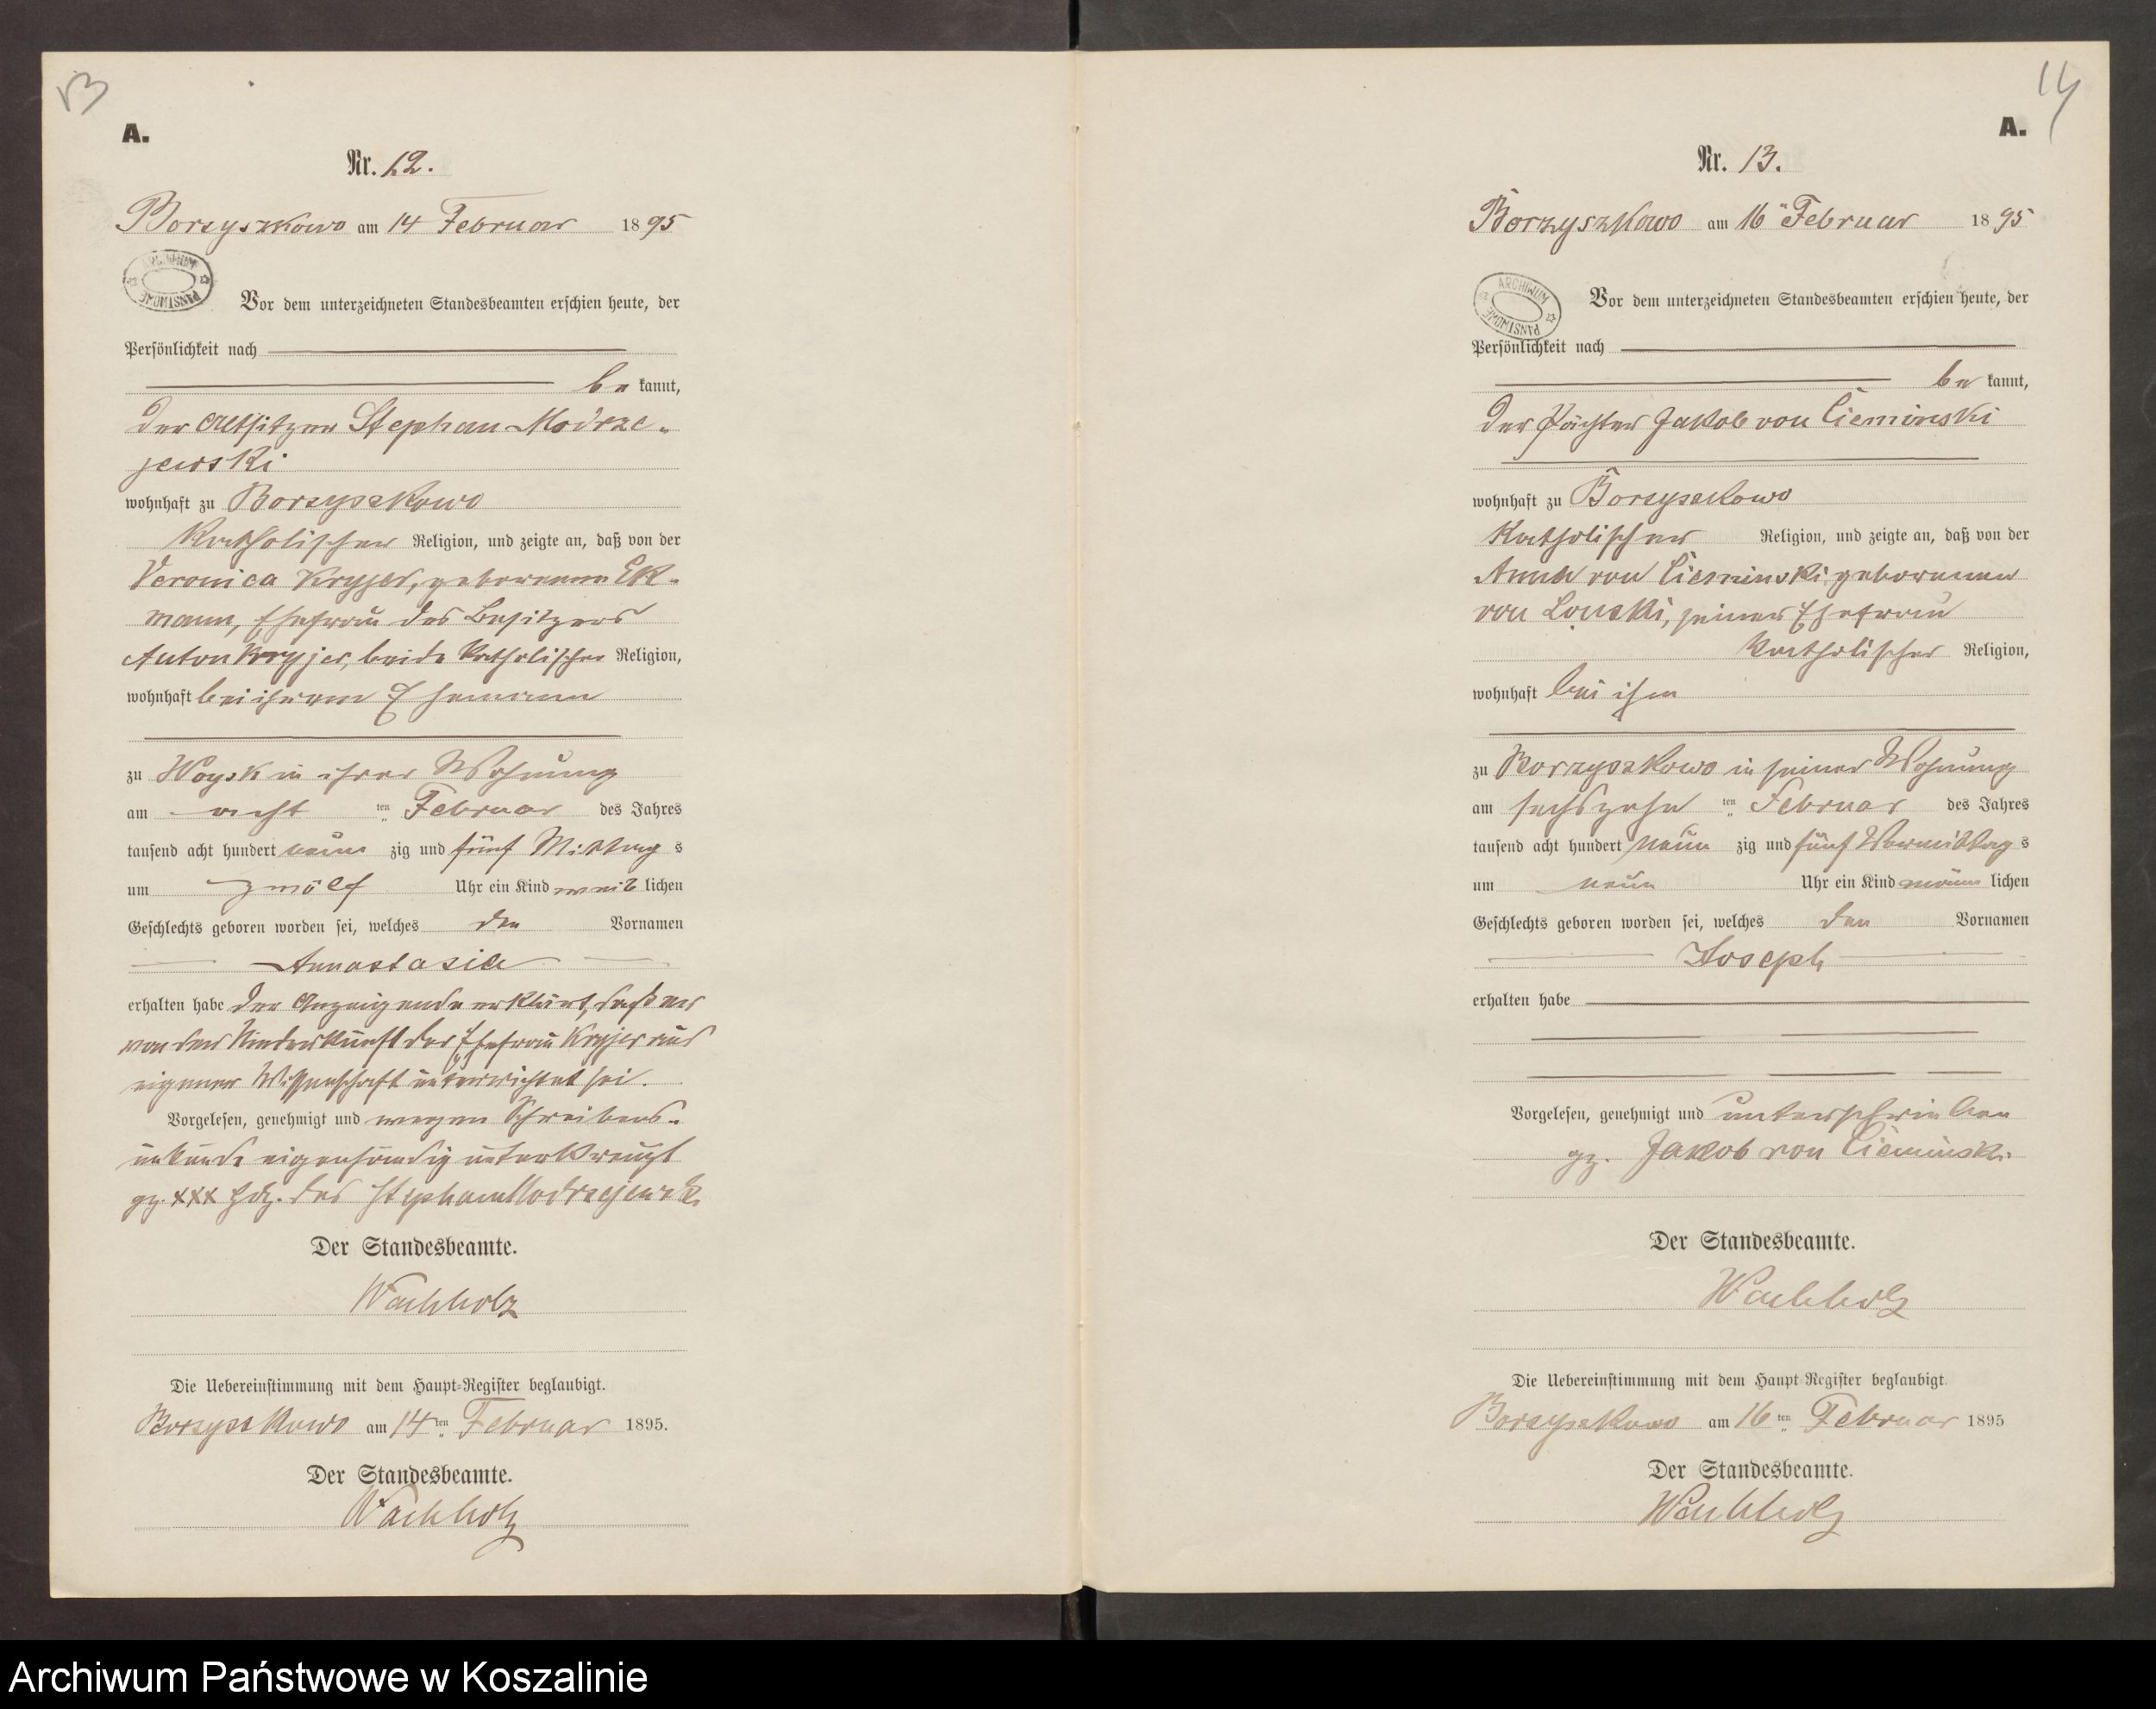 13
A.
Nr. 12.
Borzyszkowo am 14 Februar 1895
ARCHIWUM PAŃSTWOWE
Vor dem unterzeichneten Standesbeamten erschien heute, der
Persönlichkeit nach
be kannt,
der Altsitzer Stephan Modrze-
jewski
wohnhaft zu Borzyszkowo
katholischer Religion, und zeigte an, daß von der
Veronica Kryjer, geborenen Ek-
mann, Ehefrau des Besitzers
Anton Kryjer, beide katholischer Religion,
wohnhaft bei ihrem Ehemann
zu Woysk in ihrer Wohnung
am acht ten Februar des Jahres
tausend acht hundert neun zig und fünf Mittag s
um zwölf Uhr ein Kind weib lichen
Geschlechts geboren worden sei, welches den Vornamen
Annastasia
erhalten habe Der Anzeigende erklärt, daß er
von der Niederkunft der Ehefrau Kryjer aus
eigener Wissenschaft unterrichtet sei.
Vorgelesen, genehmigt und wegen Schreibens-
unkunde eigenhändig unterkreuzt
gz. xxx Hdz. des Stephan Modrzejewski
Der Standesbeamte.
Wachholz
Die Uebereinstimmung mit dem Haupt-Register beglaubigt.
Borzyszkowo am 14 ten Februar 1895.
Der Standesbeamte.
Wachholz
14
A.
Nr. 13.
Borzyszkowo am 16 Februar 1895
ARCHIWUM PAŃSTWOWE
Vor dem unterzeichneten Standesbeamten erschien heute, der
Persönlichkeit nach
be kannt,
der Pächter Jakob von Cieminski
wohnhaft zu Borzyszkowo
katholischer Religion, und zeigte an, daß von der
Anna von Cieminski geborenen
von Lonski, seiner Ehefrau
katholischer Religion,
wohnhaft bei ihm
zu Borzyszkowo in seiner Wohnung
am sechszehn ten Februar des Jahres
tausend acht hundert neun zig und fünf Vormittag s
um neun Uhr ein Kind männ lichen
Geschlechts geboren worden sei, welches den Vornamen
Joseph
erhalten habe
Vorgelesen, genehmigt und unterschrieben
gz. Jakob von Cieminski
Der Standesbeamte.
Wachholz
Die Uebereinstimmung mit dem Haupt-Register beglaubigt
Borzyszkowo am 16 ten Februar 1895
Der Standesbeamte.
Wachholz
Archiwum Państwowe w Koszalinie